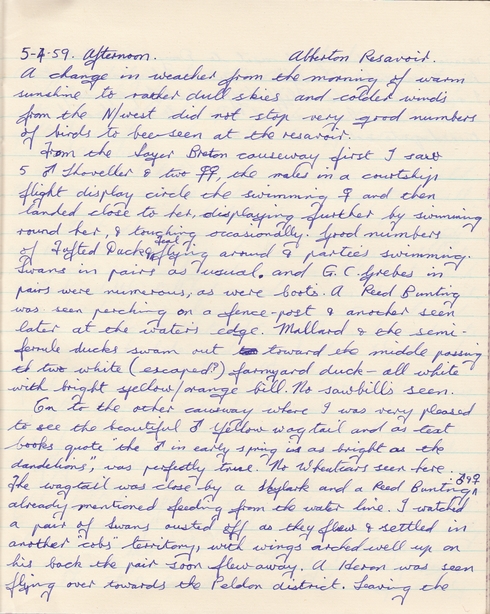 5-4-59. Afternoon. Abberton Resavoir.
A change in weather from the morning of warm
sunshine to rather dull skies and colder winds
from the N/west did not stop very good numbers
of birds to bee seen at the resavoir.
From the Layer Breton causeway first I saw
5 ♂ Shoveller & two ♀♀, the males in a courtship
flight display circle the swimming ♀ and then
landed close to her, displaying further by swimming
round her, & touching occasionally. Good numbers
of Tufted Duck & Teal flying around & parties swimming.
Swans in pairs as usual. and G.C. Grebes in
pairs were numerous, as were Coots. A Reed Bunting
was seen perching on a fence-post & another seen
later at the water's edge. Mallard & the semi-
female ducks swam out toward the middle passing
th two white (escaped?) farmyard duck - all white
with bright yellow/orange bill. No sawbills seen.
On to the other causeway where I was very pleased
to see the beautiful ♂ Yellow wagtail and as text
books quote "the ♂ in early spring is as bright as the
dandelions", was perfectly true. No Wheatears seen here.
The wagtail was close by a Skylark and a Reed Bunting ♂♀
already mentioned feeding from the water line. I watched
a pair of swans ousted off as they flew & settled in
another "cobs" territory, with wings arched well up on
his back the pair soon flew away. A Heron was seen
flying over towards the Peldon district. Leaving the